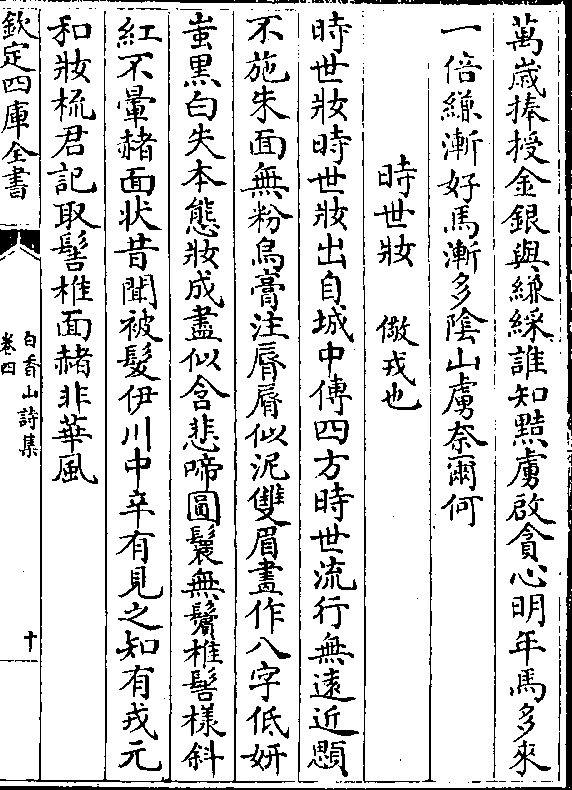 萬歲捧授金銀與縑綵誰知黠虜啟貪心明年馬多來
一倍縑漸好馬漸多陰山虜奈爾何
時世妝　儆戎也
時世妝時世妝出自城中傳四方時世流行無遠近顋
不施朱面無粉烏膏注脣脣似泥雙眉畫作八字低妍
蚩黑白失本態妝成盡似含悲啼圓鬟無鬢椎髻樣斜
紅不暈赭面狀昔聞被髮伊川中辛有見之知有戎元
和妝梳君記取髻椎面赭非華風
欽定四庫全書
白香山詩集
卷四
十